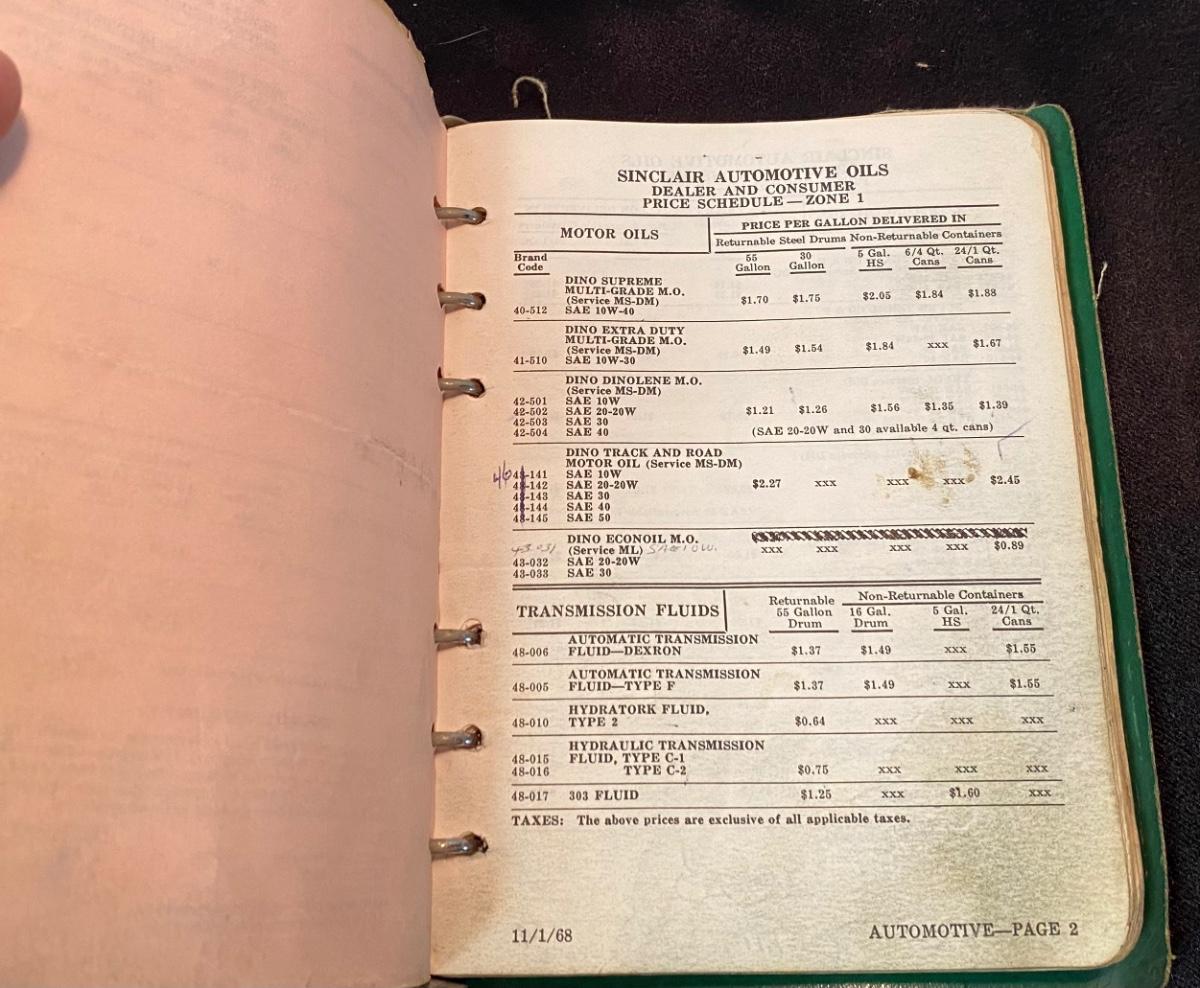 SINCLAIR AUTOMOTIVE OILS
DEALER AND CONSUMER
PRICE SCHEDULE — ZONE 1
MOTOR OILS
PRICE PER GALLON DELIVERED IN
Returnable Steel Drums Non-Returnable Containers
Brand Code 55 Gallon 30 Gallon 5 Gal. HS 6/4 Qt. Cans 24/1 Qt. Cans
DINO SUPREME
MULTI-GRADE M.O.
(Service MS-DM) $1.70 $1.75 $2.05 $1.84 $1.88
40-512 SAE 10W-40
DINO EXTRA DUTY
MULTI-GRADE M.O.
(Service MS-DM) $1.49 $1.54 $1.84 xxx $1.67
41-510 SAE 10W-30
DINO DINOLENE M.O.
(Service MS-DM)
42-501 SAE 10W
42-502 SAE 20-20W $1.21 $1.26 $1.56 $1.35 $1.39
42-503 SAE 30
42-504 SAE 40 (SAE 20-20W and 30 available 4 qt. cans)
DINO TRACK AND ROAD
MOTOR OIL (Service MS-DM)
46 48-141 SAE 10W
48-142 SAE 20-20W $2.27 xxx xxx xxx $2.45
48-143 SAE 30
48-144 SAE 40
48-145 SAE 50
DINO ECONOIL M.O.
43-031 (Service ML) SAE 10W. xxx xxx xxx xxx $0.89
43-032 SAE 20-20W
43-033 SAE 30
TRANSMISSION FLUIDS
Non-Returnable Containers
Returnable 55 Gallon Drum 16 Gal. Drum 5 Gal. HS 24/1 Qt. Cans
AUTOMATIC TRANSMISSION
48-006 FLUID—DEXRON $1.37 $1.49 xxx $1.55
AUTOMATIC TRANSMISSION
48-005 FLUID—TYPE F $1.37 $1.49 xxx $1.55
HYDRATORK FLUID,
48-010 TYPE 2 $0.64 xxx xxx xxx
HYDRAULIC TRANSMISSION
48-015 FLUID, TYPE C-1
48-016 TYPE C-2 $0.75 xxx xxx xxx
48-017 303 FLUID $1.25 xxx $1.60 xxx
TAXES: The above prices are exclusive of all applicable taxes.
11/1/68 AUTOMOTIVE—PAGE 2